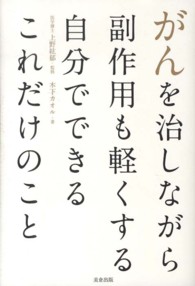 がんを治しながら
副作用も軽くする
自分でできる
これだけのこと
医学博士 上野紘郁 監修
木下カオル 著
真音出版